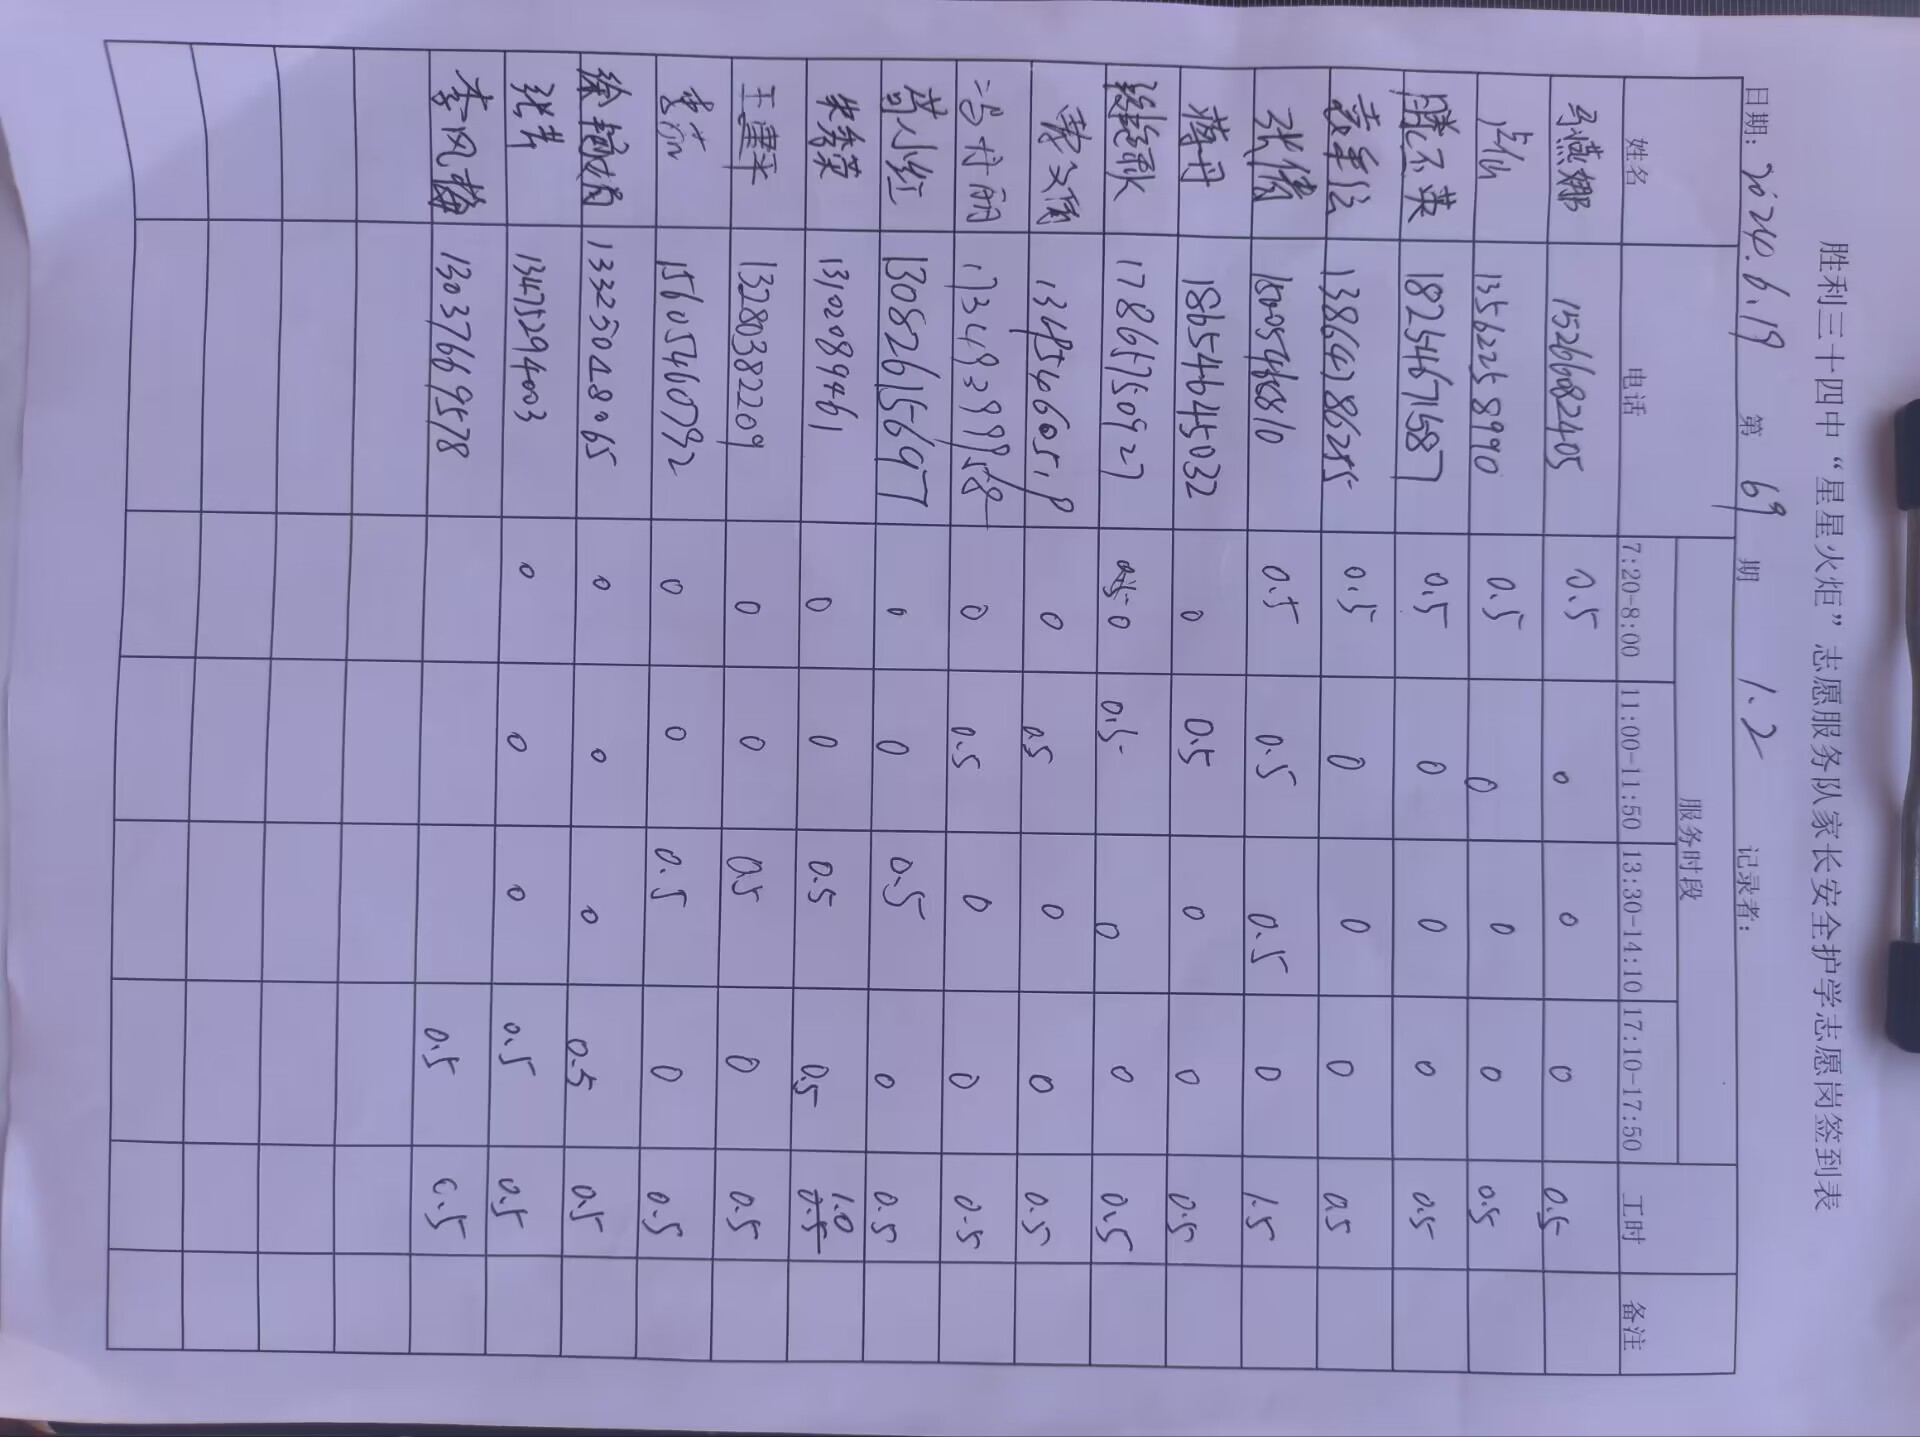 胜利三十四中“星星火炬”志愿服务队家长安全护学志愿岗签到表
日期：2024.6.19 第 69 期 1.2 记录者：
姓名 电话 服务时段 工时 备注
7:20-8:00 11:00-11:50 13:30-14:10 17:10-17:50
马燕娜 15266082405 0.5 0 0 0 0.5
13562258990 0.5 0 0 0 0.5
滕不英 18254671587 0.5 0 0 0 0.5
13864786285 0.5 0 0 0 0.5
张倩 0.5 0.5 0.5 0 1.5
蒋丹 18654645032 0 0.5 0 0 0.5
17865750927 0 0.5 0 0 0.5
0 0.5 0 0 0.5
冯丹丽 0 0.5 0 0 0.5
苗小红 13082615697 0 0 0.5 0 0.5
朱秀荣 13102089461 0 0 0.5 0.5 1.0
王建平 13280382209 0 0 0.5 0 0.5
李 15605460792 0 0 0.5 0 0.5
徐艳娟 13325048065 0 0 0 0.5 0.5
张菁 13475294003 0 0 0 0.5 0.5
李风梅 13037669578 0.5 0.5